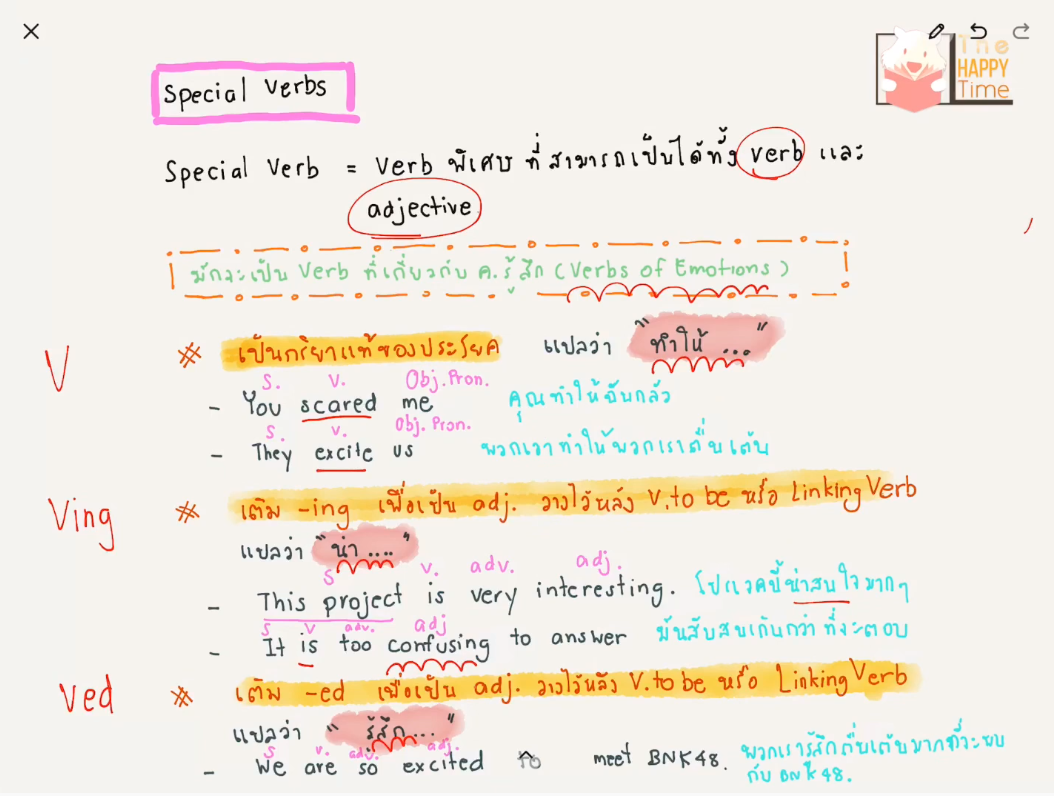 The
HAPPY
Time
Special Verbs
Special Verb = Verb พิเศษ ที่สามารถเป็นได้ทั้ง verb และ
adjective
มักจะเป็น Verb ที่เกี่ยวกับ ค.รู้สึก (Verbs of Emotions)
V # เป็นกริยาแท้ของประโยค แปลว่า "ทำให้ ..."
S. V. Obj. Pron.
- You scared me คุณทำให้ฉันกลัว
S. V. Obj. Pron.
- They excite us พวกเขาทำให้พวกเราตื่นเต้น
Ving # เติม -ing เพื่อเป็น adj. วางไว้หลัง V. to be หรือ Linking Verb
แปลว่า "น่า ...."
S V. adv. adj.
- This project is very interesting. โปรเจคนี้น่าสนใจมากๆ
S V adv. adj
- It is too confusing to answer มันสับสนเกินกว่าที่จะตอบ
Ved # เติม -ed เพื่อเป็น adj. วางไว้หลัง V. to be หรือ Linking Verb
แปลว่า "รู้สึก..."
S V. adv. adj.
- We are so excited to meet BNK48. พวกเรารู้สึกตื่นเต้นมากที่จะพบ
กับ BNK48.